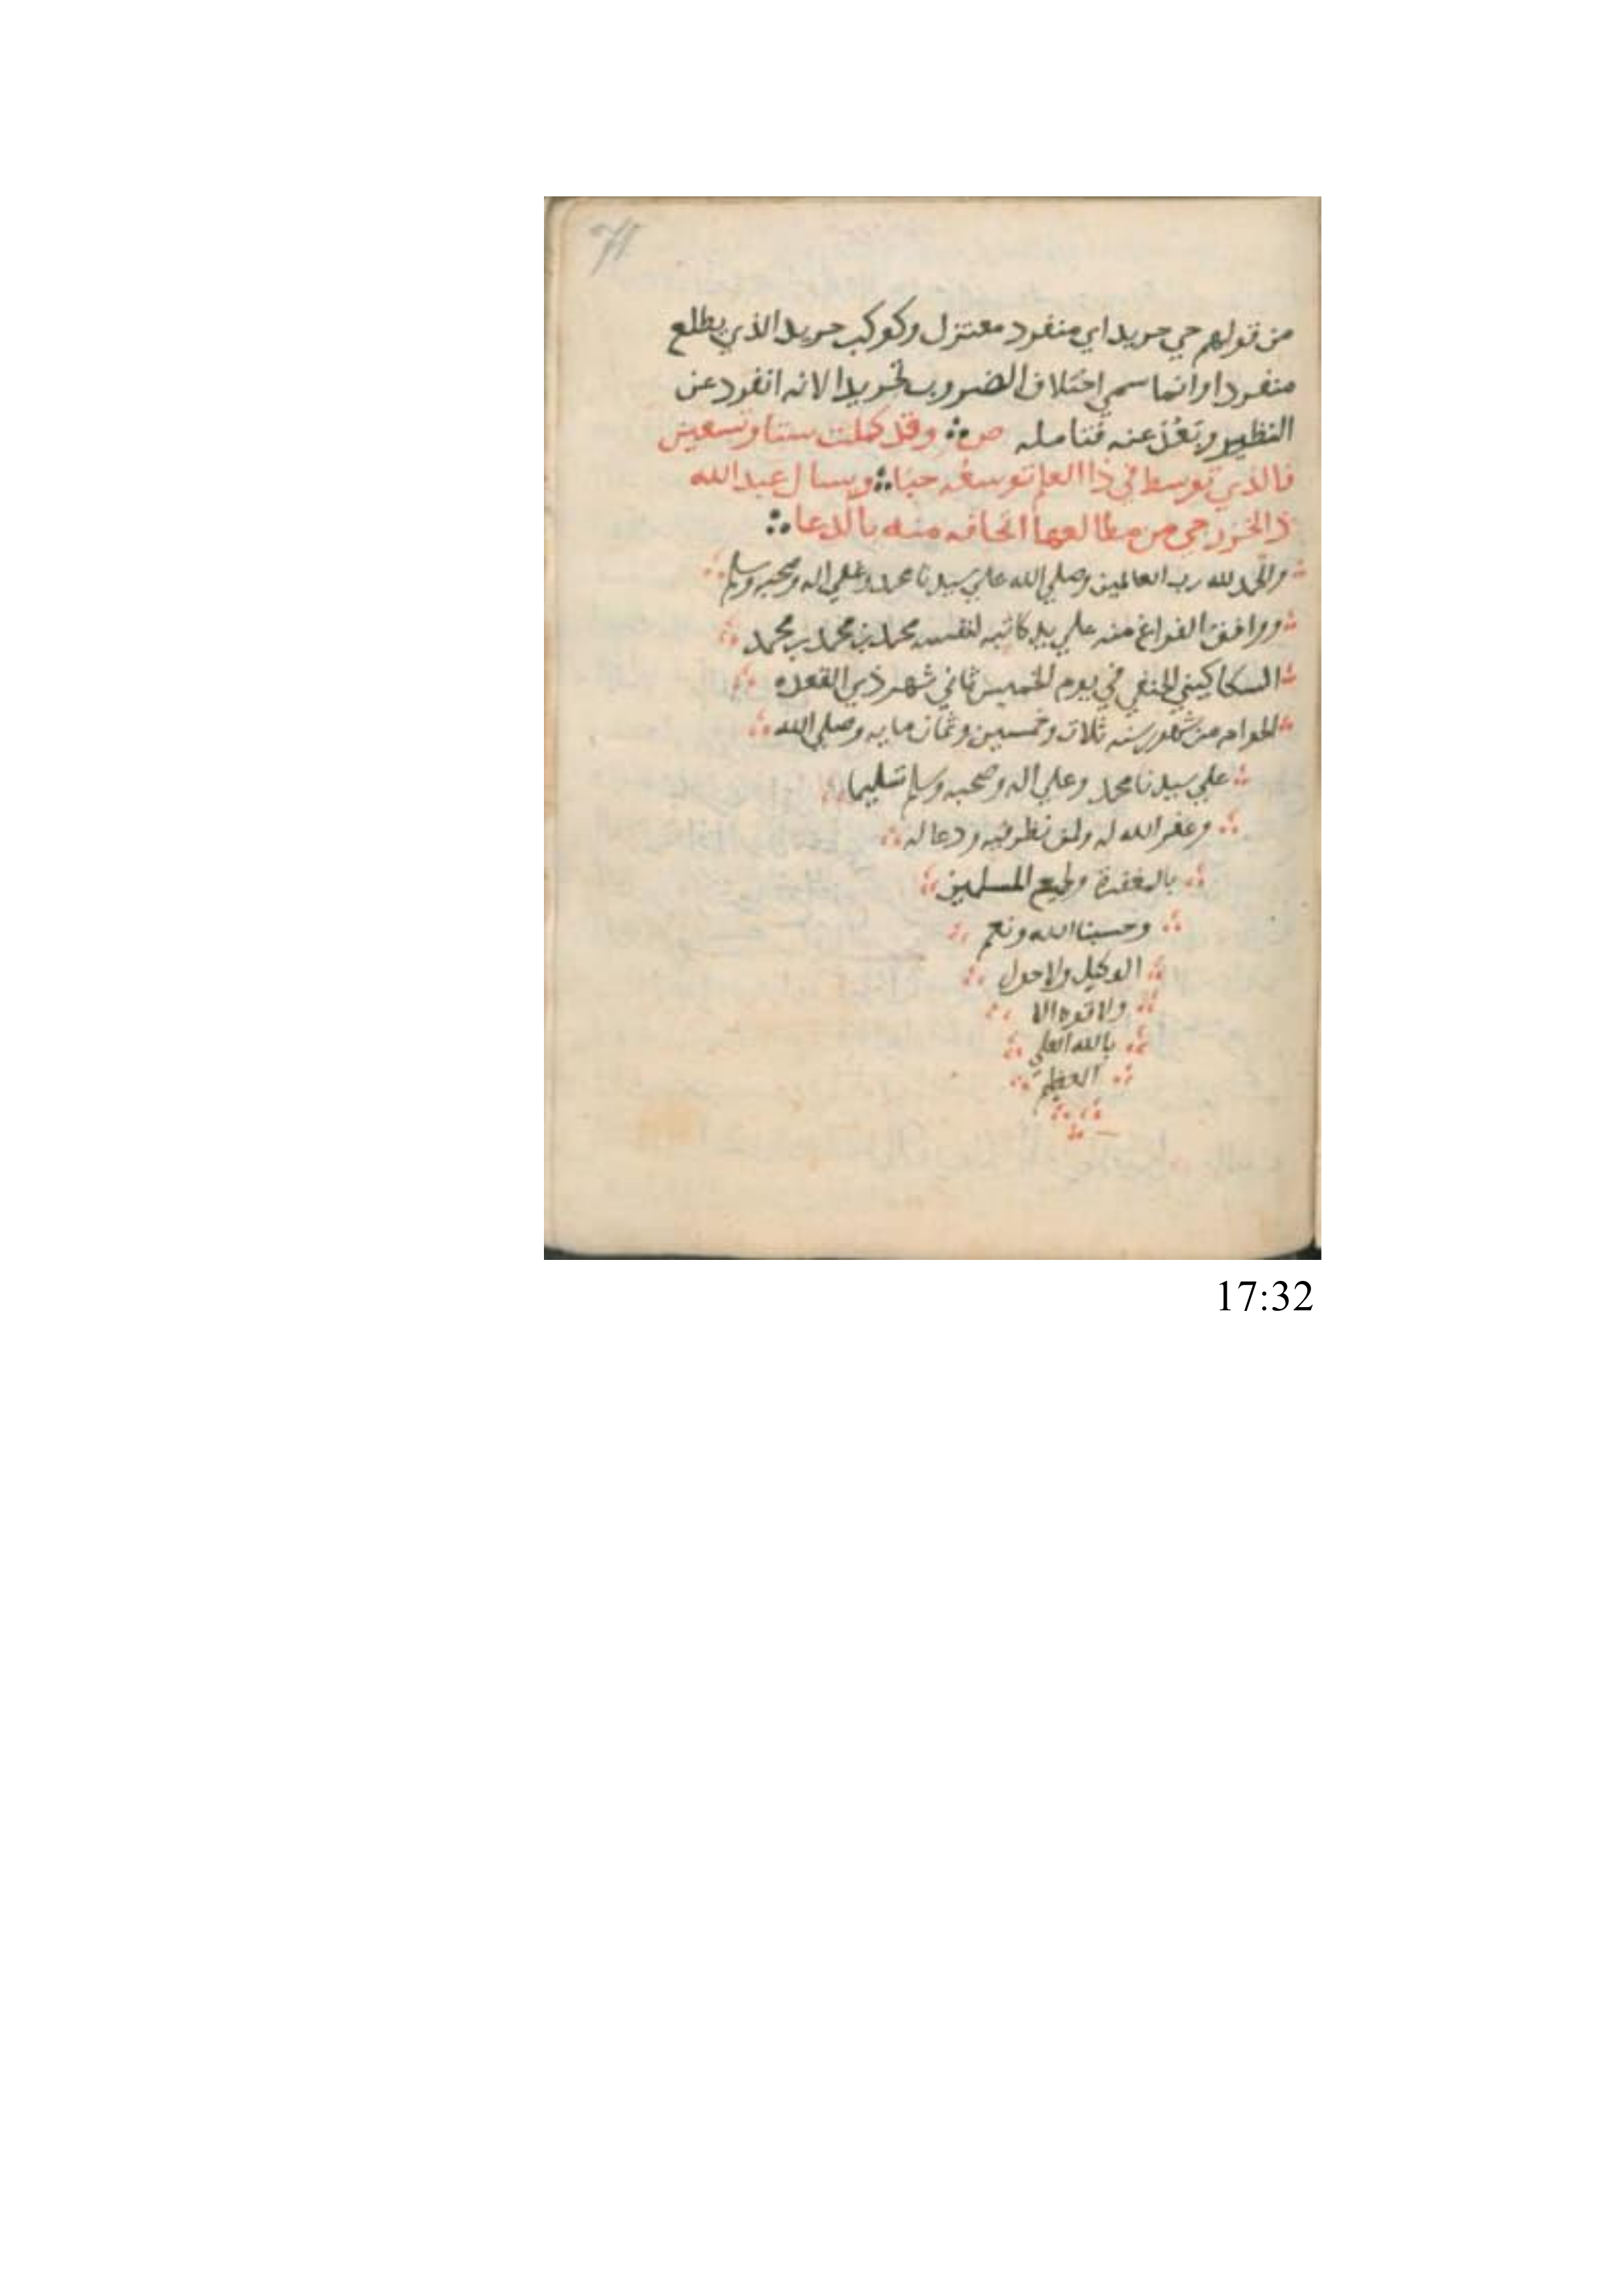 71
من قولهم حي حريد اي منفرد معتزل وكوكب حريد الذي يطلع
منفردا وانما سمي اختلاف الضروب تحريدا لانه انفرد عن
النظير وبَعُدَ عنه فتامله ص وقد كملت ستا وتسعين
فالذي توسط في ذا العلم توسعه حبًا ويسال عبدالله
ذا الخزرجي من مطالعها اتحافه منه بالدعا
والحمد لله رب العالمين وصلي الله علي سيدنا محمد وعلي اله وصحبه وسلم
ووافق الفراغ منه علي يد كاتبه لنفسه محمد بن محمد بن محمد
السكاكيني الحنفي في يوم الخميس ثاني شهر ذي القعده
الحرام من شهور سنه ثلاث وخمسين وثمان مايه وصلي الله
علي سيدنا محمد وعلي اله وصحبه وسلم تسليما
وغفر الله له ولمن نظر فيه ودعا له
بالمغفرة ولجميع المسلمين
وحسبنا الله ونعم
الوكيل ولا حول
ولا قوه الا
بالله العلي
العظيم
17:32